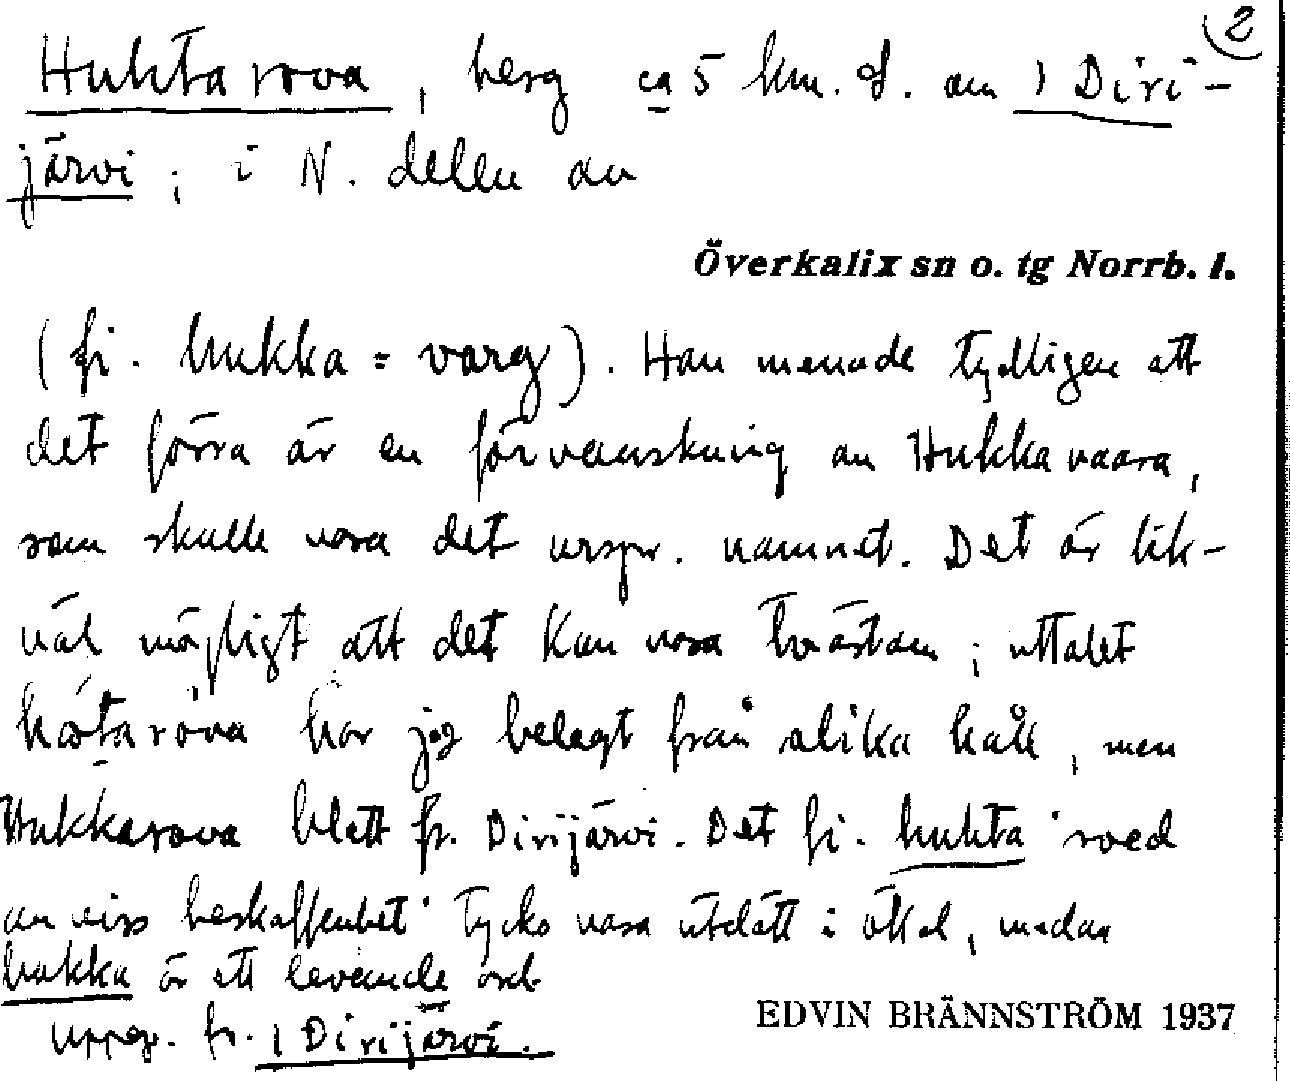 2
Huhta rova, berg ca 5 km. S. om 1 Diri-
järvi; i N. delen av
Överkalix sn o. tg Norrb. l.
(fi. hukka = varg). Han menade tydligen att
det förra är en förvanskning av Hukkavaara,
som skulle vara det urspr. namnet. Det är lik-
väl möjligt att det kan vara tvärtom; uttalet
har jag belagt från olika håll, men
Hukkarova blott fr. Dirijärvi. Det fi. huhta 'sved
av viss beskaffenhet' tycks vara utdött i ökal, medan
hukka är ett levande ord
uppg. fr. 1 Dirijärvi.
EDVIN BRÄNNSTRÖM 1937